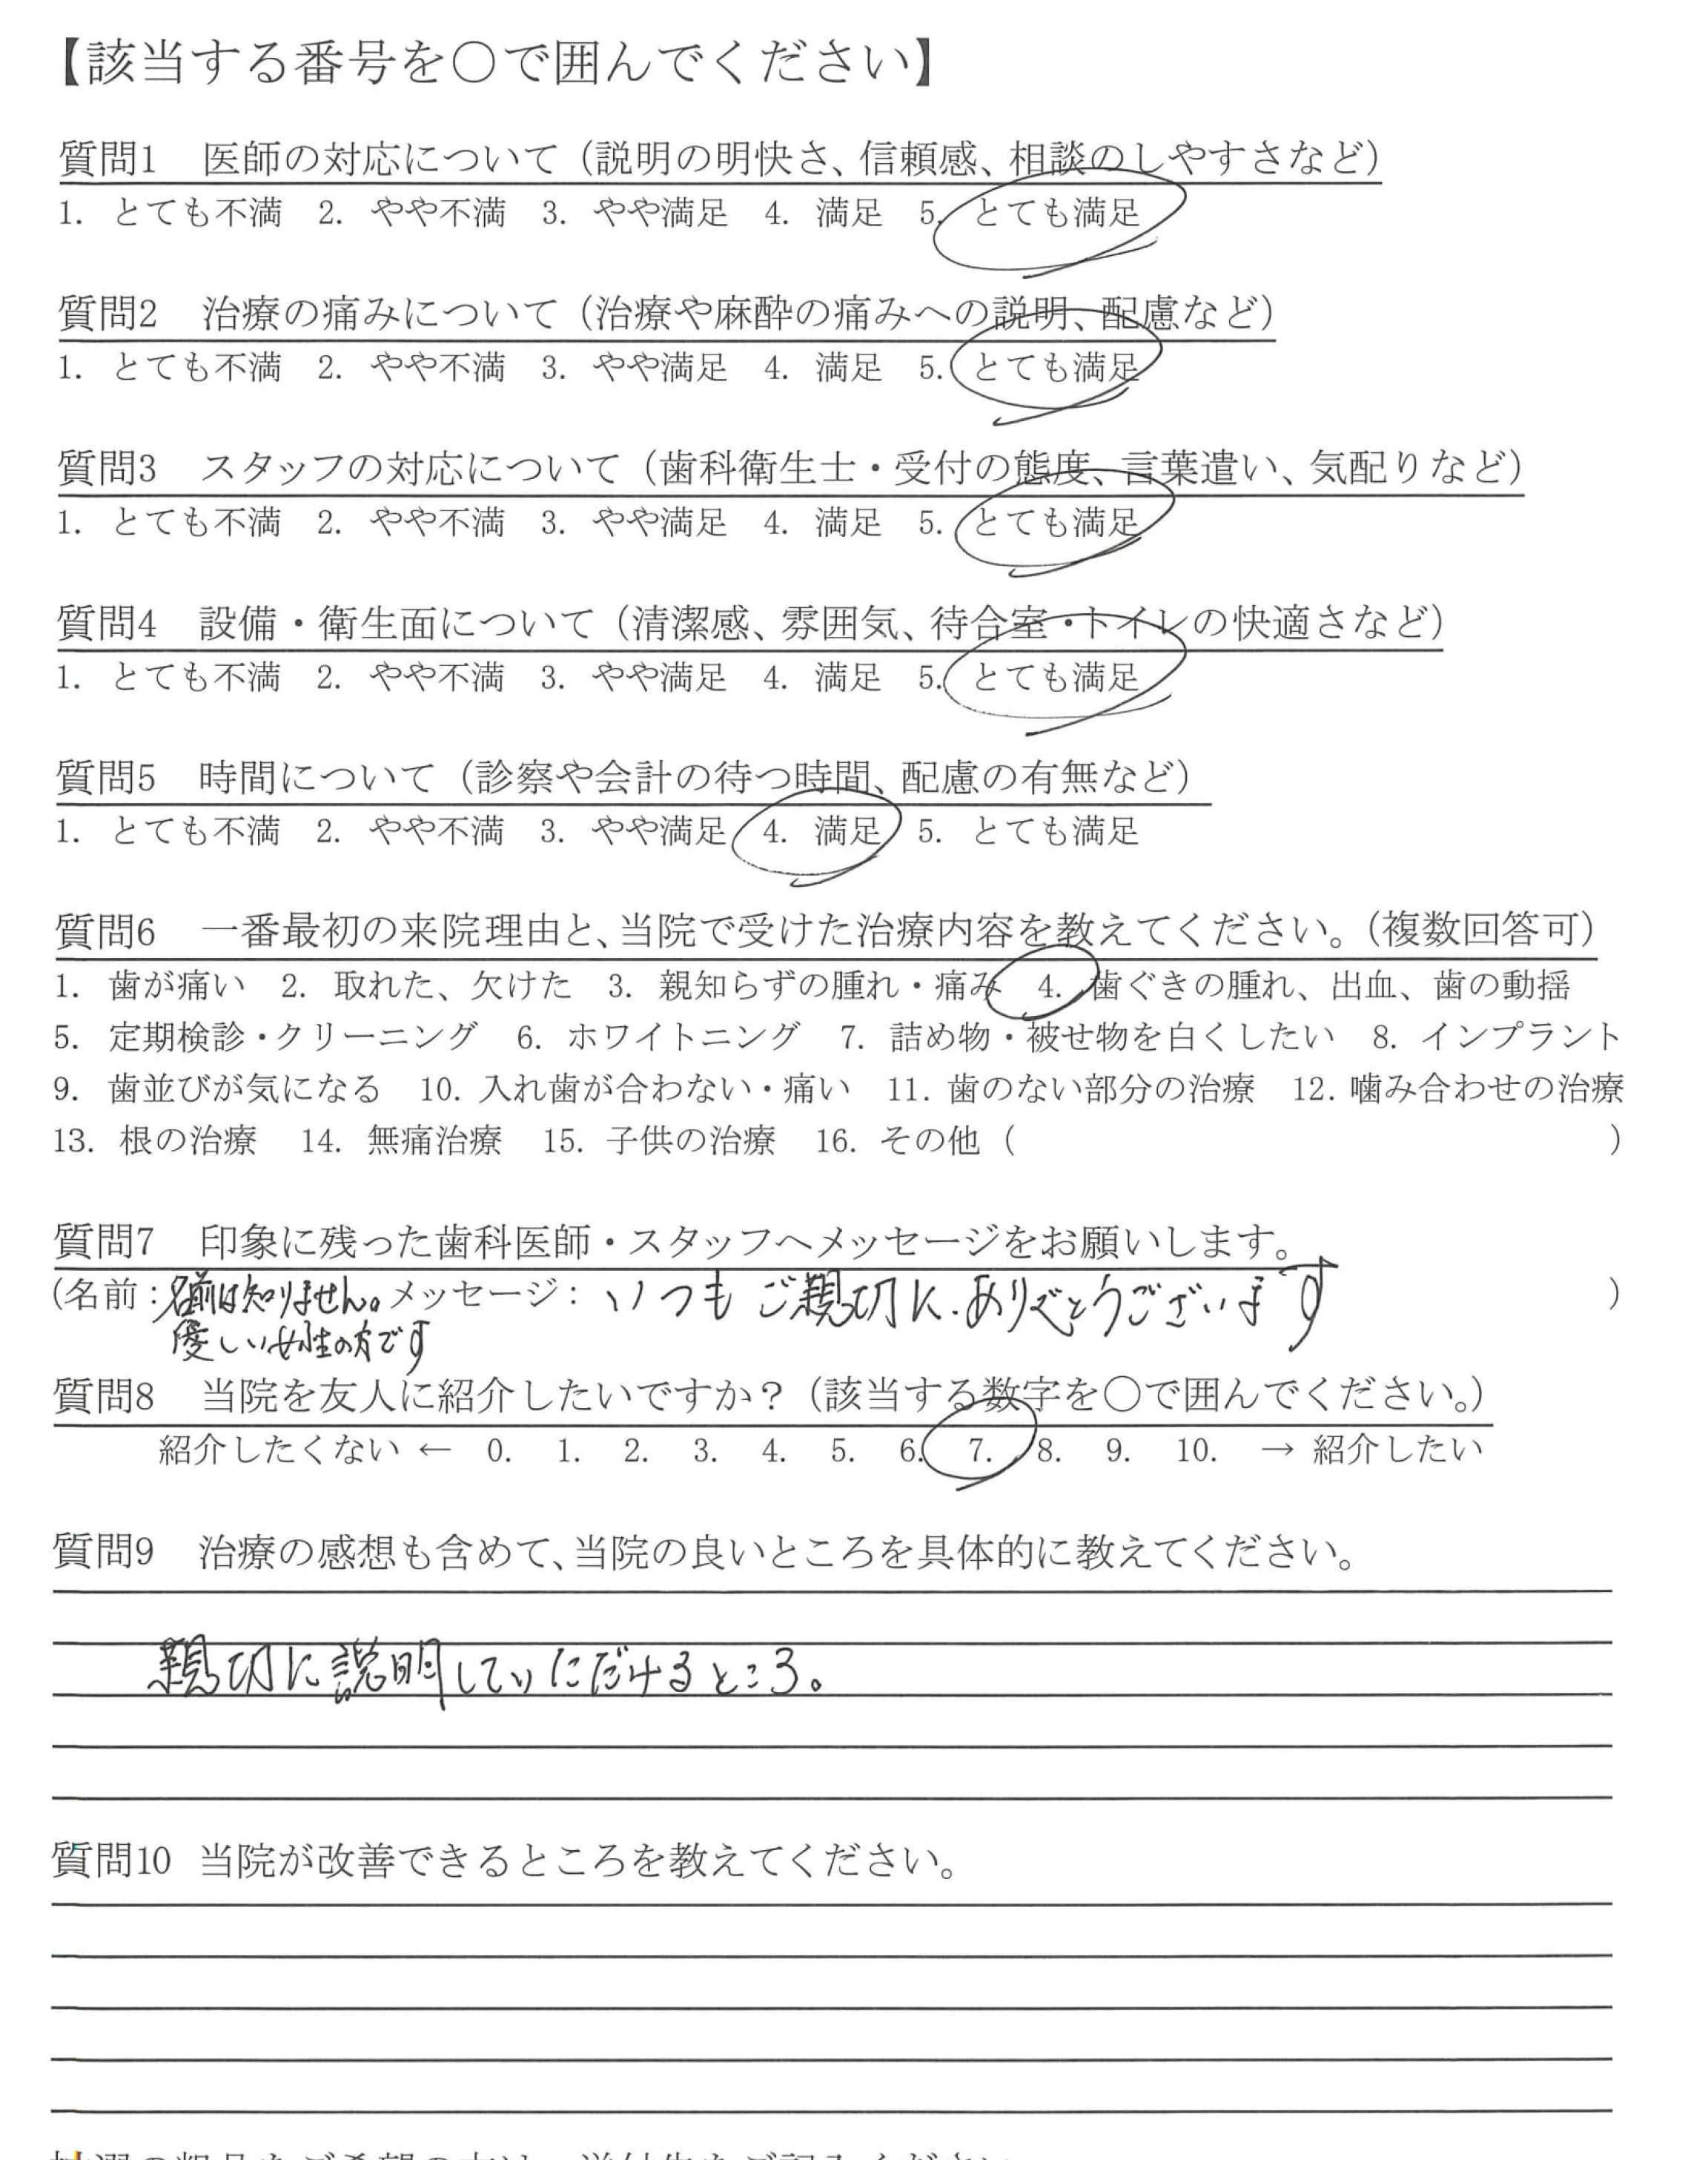 【該当する番号を〇で囲んでください】
質問1　医師の対応について（説明の明快さ、信頼感、相談のしやすさなど）
1. とても不満　2. やや不満　3. やや満足　4. 満足　5. とても満足
質問2　治療の痛みについて（治療や麻酔の痛みへの説明、配慮など）
1. とても不満　2. やや不満　3. やや満足　4. 満足　5. とても満足
質問3　スタッフの対応について（歯科衛生士・受付の態度、言葉遣い、気配りなど）
1. とても不満　2. やや不満　3. やや満足　4. 満足　5. とても満足
質問4　設備・衛生面について（清潔感、雰囲気、待合室・トイレの快適さなど）
1. とても不満　2. やや不満　3. やや満足　4. 満足　5. とても満足
質問5　時間について（診察や会計の待つ時間、配慮の有無など）
1. とても不満　2. やや不満　3. やや満足　4. 満足　5. とても満足
質問6　一番最初の来院理由と、当院で受けた治療内容を教えてください。（複数回答可）
1. 歯が痛い　2. 取れた、欠けた　3. 親知らずの腫れ・痛み　4. 歯ぐきの腫れ、出血、歯の動揺
5. 定期検診・クリーニング　6. ホワイトニング　7. 詰め物・被せ物を白くしたい　8. インプラント
9. 歯並びが気になる　10. 入れ歯が合わない・痛い　11. 歯のない部分の治療　12. 噛み合わせの治療
13. 根の治療　14. 無痛治療　15. 子供の治療　16. その他（　　　）
質問7　印象に残った歯科医師・スタッフへメッセージをお願いします。
（名前：名前は知りません。メッセージ：いつもご親切に．ありがとうございます　）
優しい女性の方です
質問8　当院を友人に紹介したいですか？（該当する数字を〇で囲んでください。）
紹介したくない ← 0. 1. 2. 3. 4. 5. 6. 7. 8. 9. 10. → 紹介したい
質問9　治療の感想も含めて、当院の良いところを具体的に教えてください。
親切に説明していただけるところ。
質問10 当院が改善できるところを教えてください。